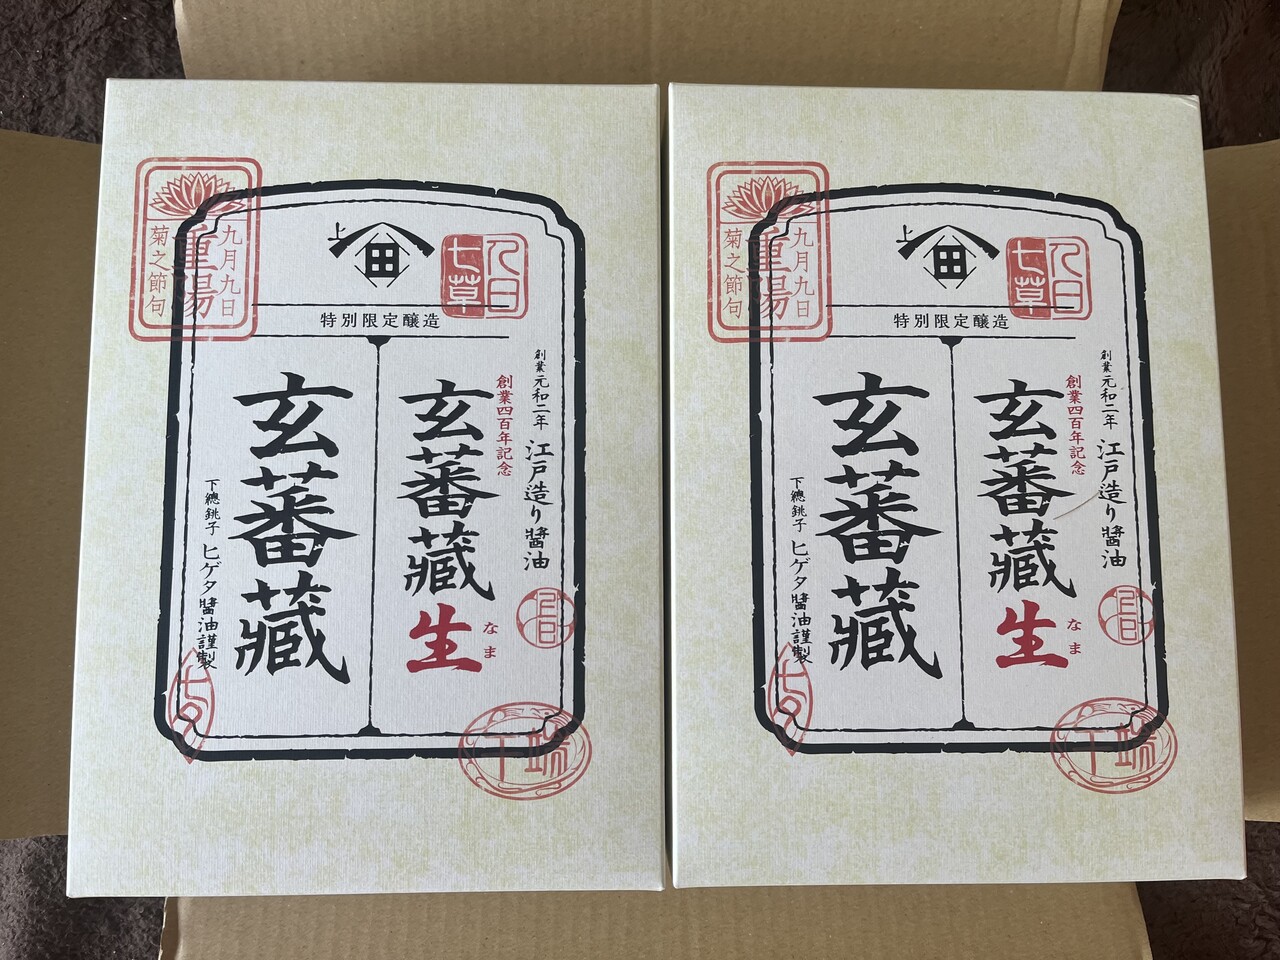 九月九日
重陽
菊之節句
上
田
人日
七草
特別限定醸造
創業元和二年 江戸造り醬油
創業四百年記念
玄蕃藏生
なま
玄蕃藏
下總銚子 ヒゲタ醬油謹製
上巳
七夕
端午
九月九日
重陽
菊之節句
上
田
人日
七草
特別限定醸造
創業元和二年 江戸造り醬油
創業四百年記念
玄蕃藏生
なま
玄蕃藏
下總銚子 ヒゲタ醬油謹製
上巳
七夕
端午